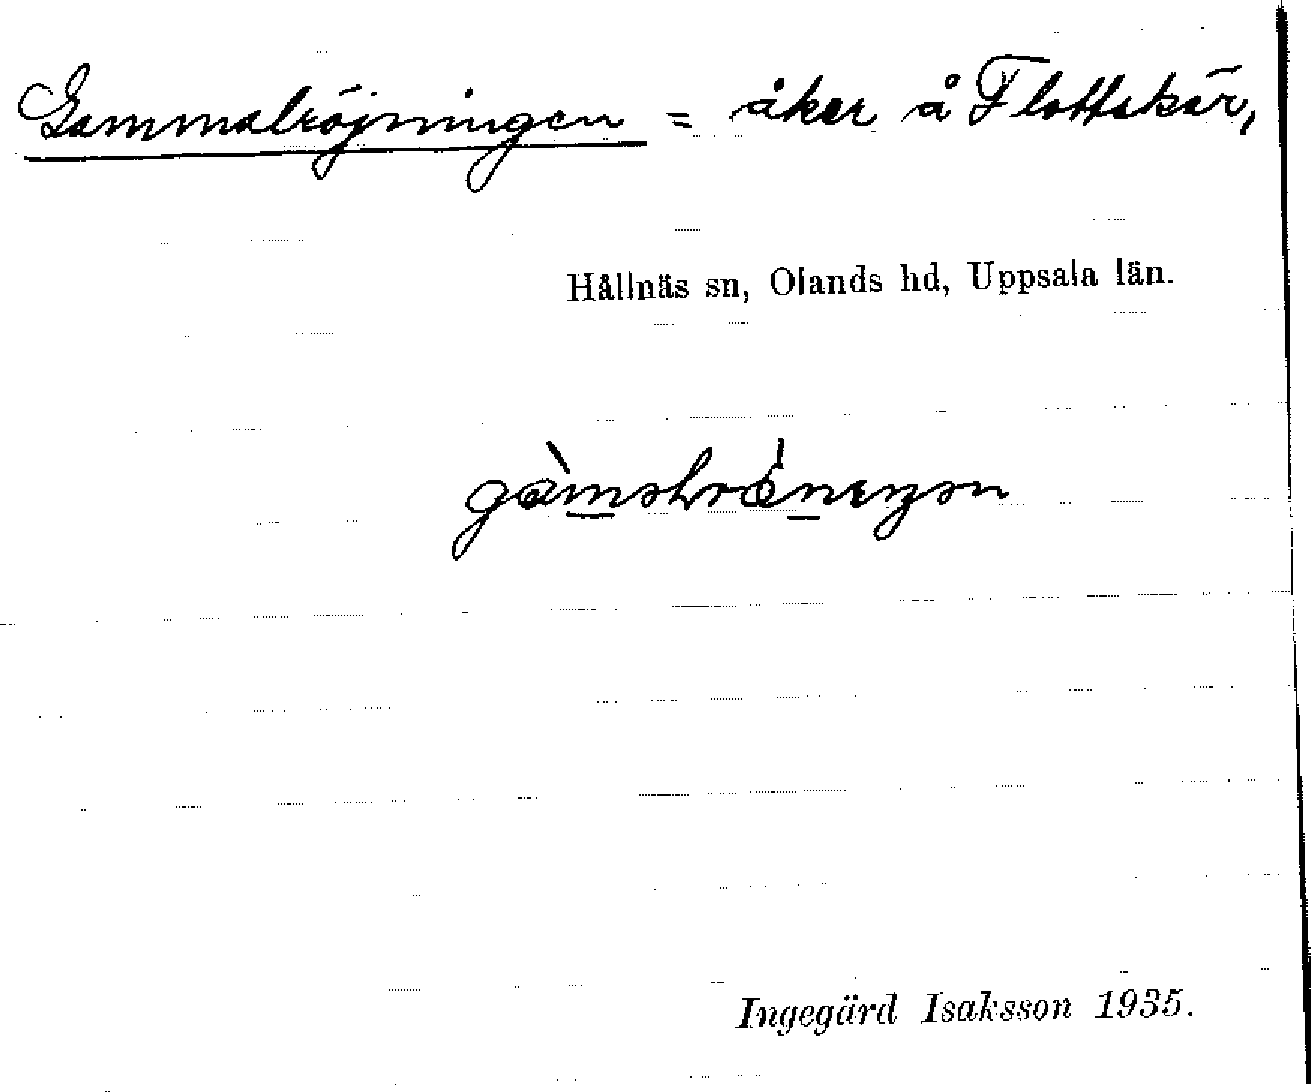 Gammalröjningen = åker å Flottskär,
Hållnäs sn, Olands hd, Uppsala län.
Ingegärd Isaksson 1935.